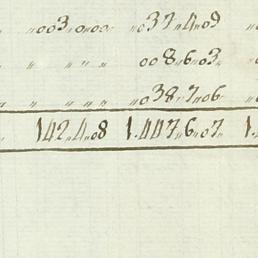 „ „003„0„00 „037„4„09 „0
„ „ „ „ 008„6„03„ „0
„ „ „ „ „038„7„06 „0
142„4„08 1.447„6„07 1.